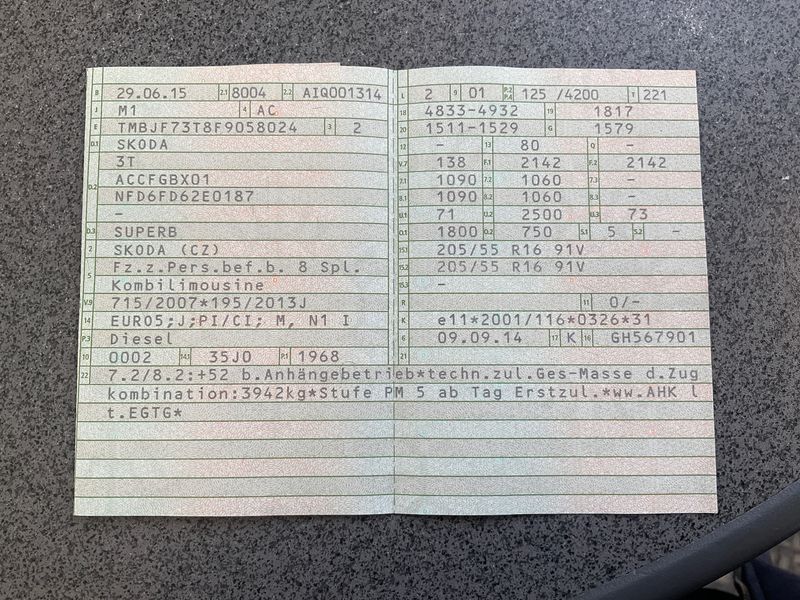 B 29.06.15 2.1 8004 2.2 AIQ001314
J M1 4 AC
E TMBJF73T8F9058024 3 2
D.1 SKODA
3T
D.2 ACCFGBX01
NFD6FD62E0187
-
D.3 SUPERB
2 SKODA (CZ)
5 Fz.z.Pers.bef.b. 8 Spl.
Kombilimousine
V.9 715/2007*195/2013J
14 EURO5;J;PI/CI; M, N1 I
P.3 Diesel
10 0002 14.1 35J0 P.1 1968
L 2 9 01 P.2 P.4 125 /4200 T 221
18 4833-4932 19 1817
20 1511-1529 G 1579
12 - 13 80 Q -
V.7 138 F.1 2142 F.2 2142
7.1 1090 7.2 1060 7.3 -
8.1 1090 8.2 1060 8.3 -
U.1 71 U.2 2500 U.3 73
O.1 1800 O.2 750 S.1 5 S.2 -
15.1 205/55 R16 91V
15.2 205/55 R16 91V
15.3 -
R 11 0/-
K e11*2001/116*0326*31
6 09.09.14 17 K 16 GH567901
21
22 7.2/8.2:+52 b.Anhängebetrieb*techn.zul.Ges-Masse d.Zug
kombination:3942kg*Stufe PM 5 ab Tag Erstzul.*ww.AHK l
t.EGTG*